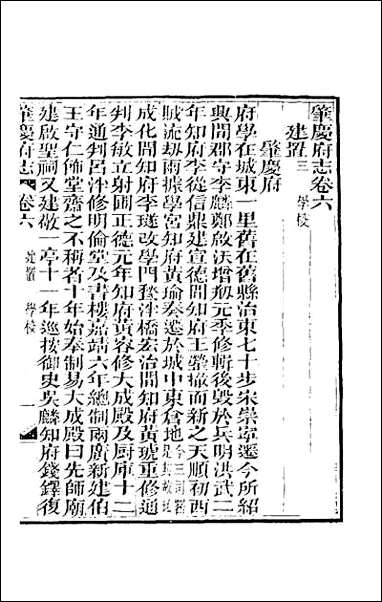 肇慶府志卷六
建置三 學校
肇慶府
府學在城東一里舊在舊縣治東七十步宋崇寧遷今所紹
興間郡守李麟鄭啟沃增刱元季修輯後毀於兵明洪武二
年知府李從信鼎建宣德間知府王罃撤而新之天順初西
賊流劫兩據學宮知府黃瑜奏遷於城中東倉地
成化間知府李璲改學門發泮橋宏治間知府黃琥重修通
判李敏立射圃正德元年知府黃容修大成殿及厨庫十二
年通判呂泮修明倫堂及書樓嘉靖六年總制兩廣新建伯
王守仁佛堂齋之不稱者十年始奉制易大成殿曰先師廟
建啟聖祠又建敬一亭十一年巡按御史吳麟知府錢鐸復
肇慶府志 卷六 建置 學校